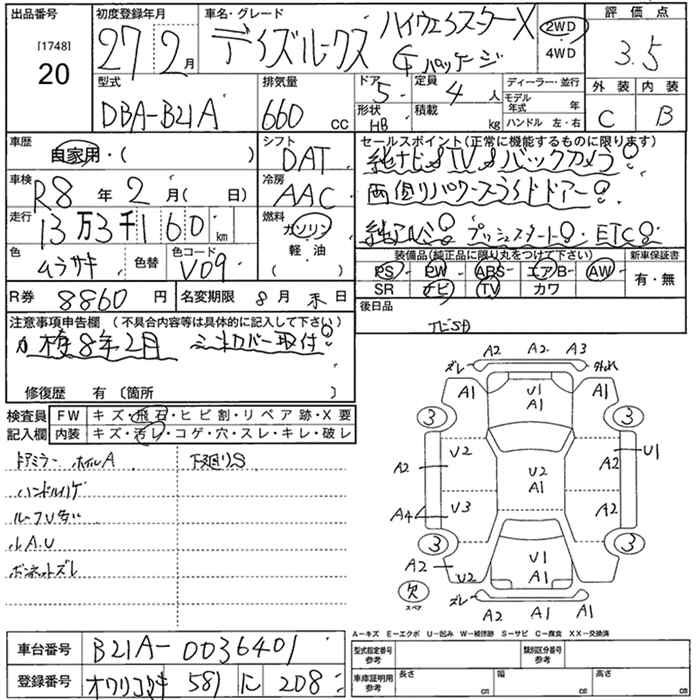 出品番号 初度登録年月 車名・グレード 評価点
[1748]
20
27年2月 デイズルークス ハイウェイスターX Gパッケージ 2WD 4WD 3.5
型式 排気量 ドア 定員 ディーラー・並行 外装 内装
DBA-B21A 660cc 5 4人 モデル年式 年 C B
形状 HB 積載 kg ハンドル 左・右
車歴 自家用・( ) シフト DAT
セールスポイント(正常に機能するものに限ります)
純ナビ&TV&バックカメラ
車検 R8年2月( 日) 冷房 AAC
両側パワースライドドアー
走行 13万3千160km 燃料 ガソリン 軽・油 ( )
純アルミ プッシュスタート ETC
色 ムラサキ 色替 色コード V09
装備品(純正品に限り丸をつけて下さい) 新車保証書
PS PW ABS エアB AW 有・無
SR ナビ TV カワ
R券 8860円 名変期限 8月末日
後日品
注意事項申告欄 (不具合内容等は具体的に記入して下さい)
8年2月 取付
修復歴 有 〔箇所 〕
検査員記入欄 FW キズ・飛石・ヒビ割・リペア跡・X要
内装 キズ・汚レ・コゲ・穴・スレ・キレ・破レ
ドアミラー ホイルA 下廻りS
ハンドルハゲ
ルーフU多い
小A.U
ボンネットズレ
A2 A2 A3
ズレ
A1 U1 A1 A1
3 3
A2 U2 U2 A1 A2 U1
A4 U3 A2
3 3
A2 U2 U1 A1 A1
欠 スペア
ズレ A2 A1 A2
A-キズ E-エクボ U-凹み W-補修跡 S-サビ C-腐食 XX-交換済
車台番号 B21A-0036401
型式指定番号 参考 類別区分番号 参考
登録番号 581 に 208
車庫証明用 参考 長さ cm 幅 cm 高さ cm